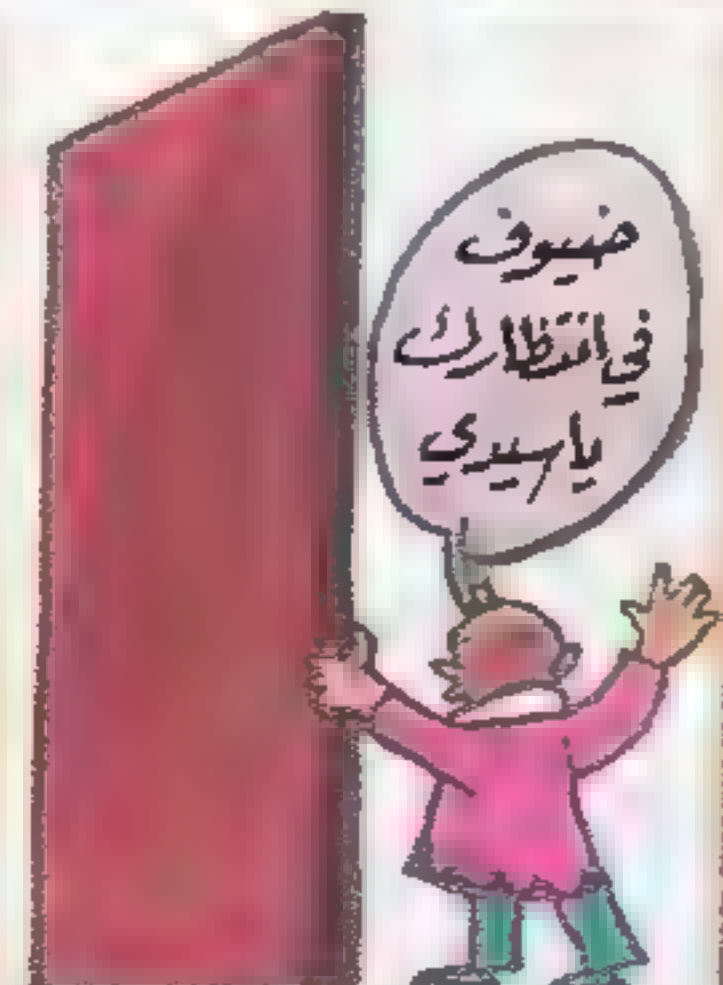 ضيوف
في انتظارك
يا سيدي